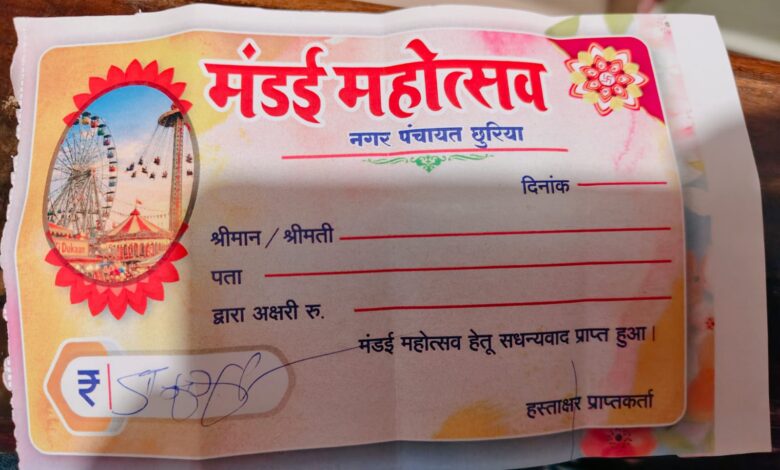 मंडई महोत्सव
नगर पंचायत छुरिया
दिनांक
श्रीमान / श्रीमती
पता
द्वारा अक्षरी रु.
मंडई महोत्सव हेतू सधन्यवाद प्राप्त हुआ।
₹
हस्ताक्षर प्राप्तकर्ता
Dukaan